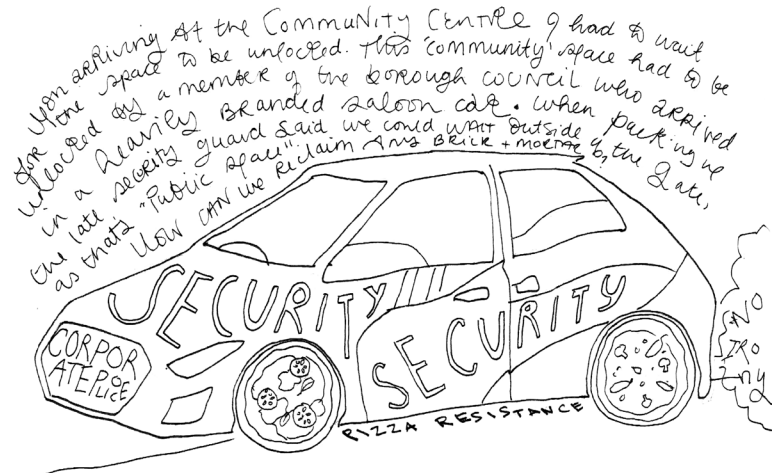 Upon arriving at the Community Centre I had to wait
for the space to be unlocked. This 'community' space had to be
unlocked by a member of the borough council who arrived
in a heavily BRANDED saloon car. When parking up
the late security guard said we could wait outside of the gate,
as that's "Public space".
How can we reclaim any BRICK + MORTAR?
SECURITY
SECURITY
CORPOR
ATE POLICE
PIZZA RESISTANCE
NO
IRO
ny